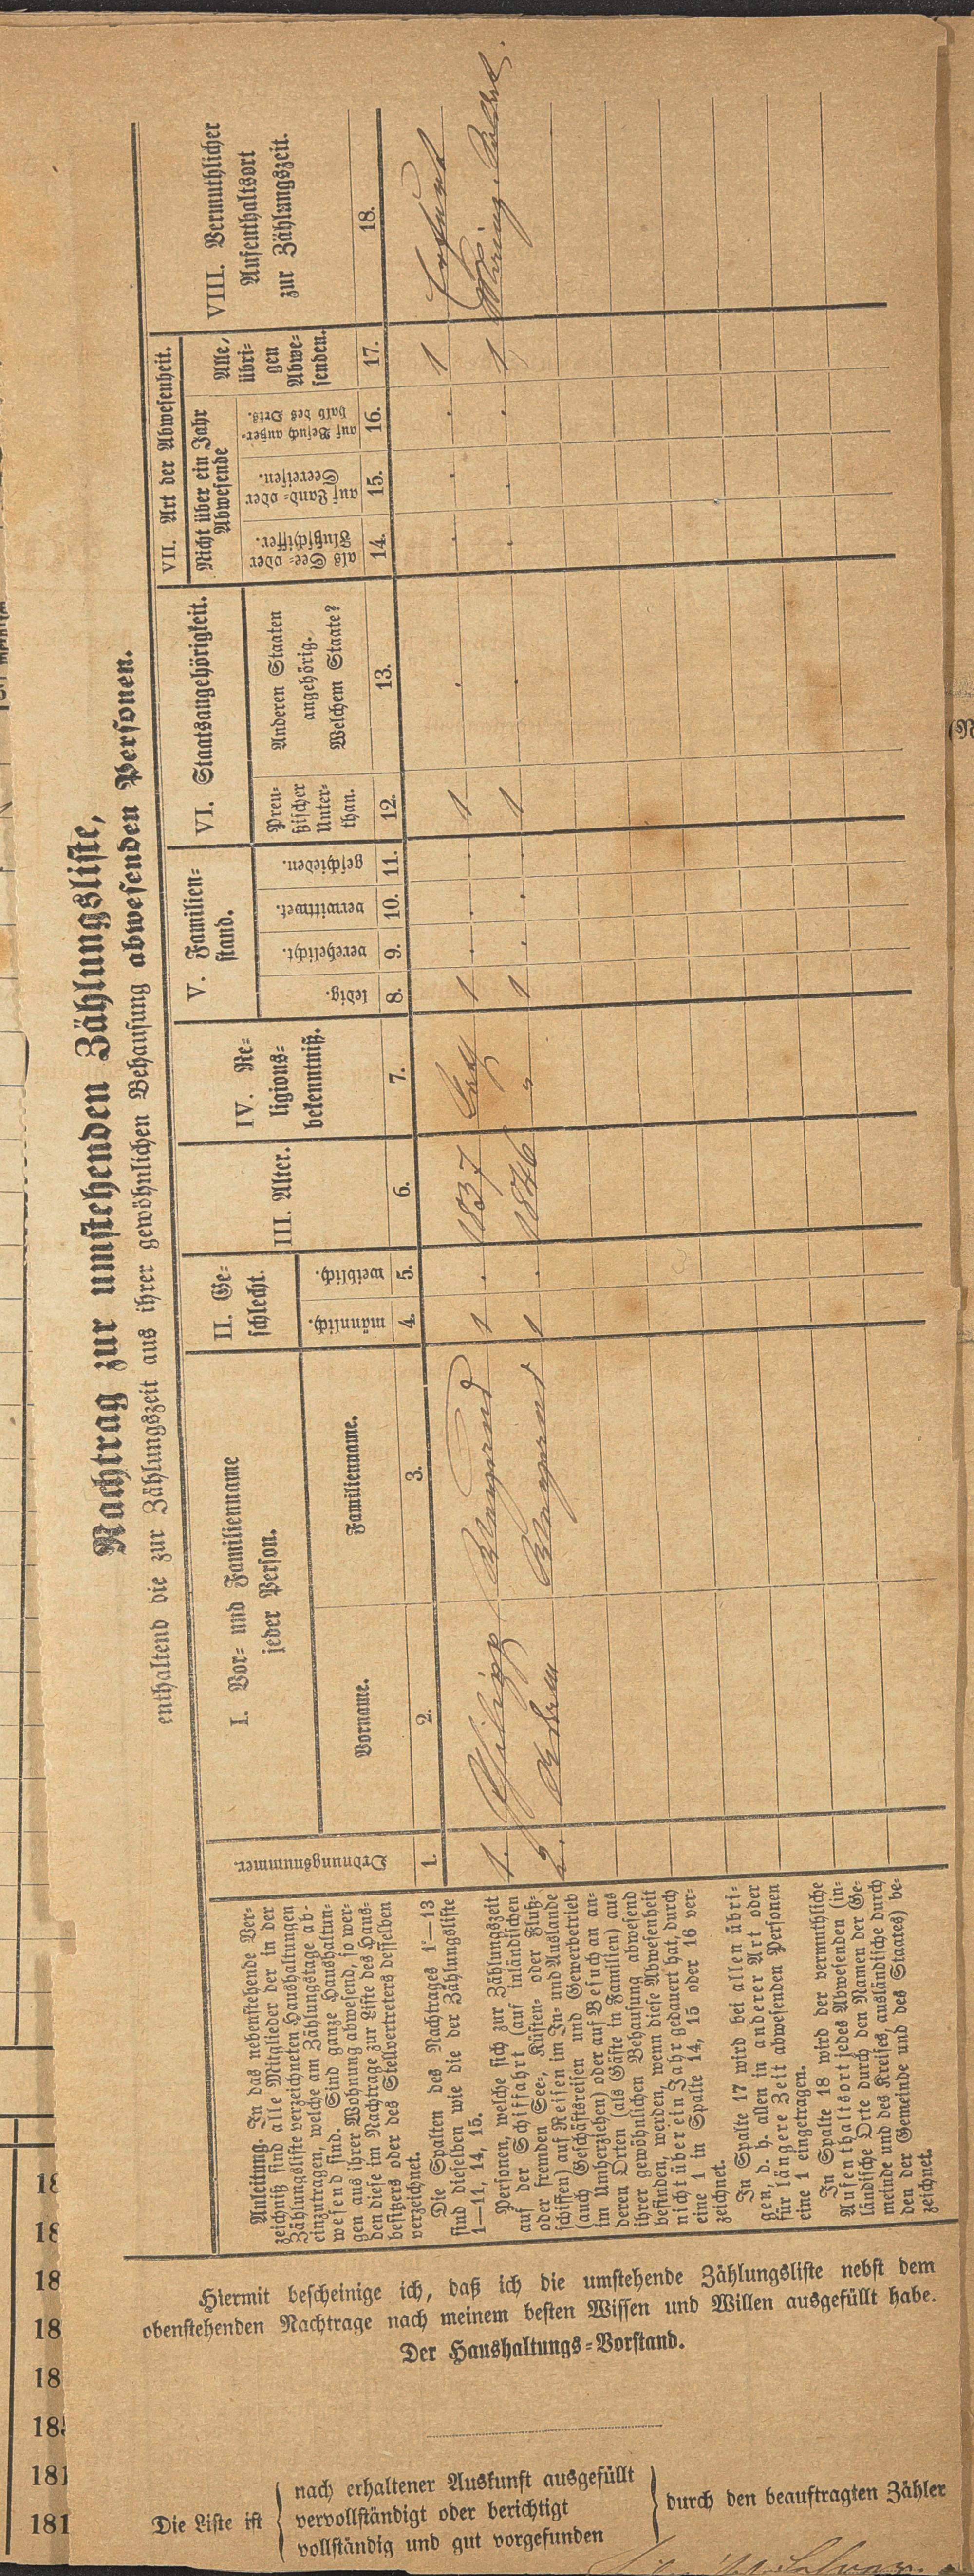 Nachtrag zur umstehenden Zählungsliste,
enthaltend die zur Zählungszeit aus ihrer gewöhnlichen Behausung abwesenden Personen.
Anleitung. In das nebenstehende Ver-
zeichniß sind alle Mitglieder der in der
Zählungsliste verzeichneten Haushaltungen
einzutragen, welche am Zählungstage ab-
wesend sind. Sind ganze Haushaltun-
gen aus ihrer Wohnung abwesend, so wer-
den diese im Nachtrage zur Liste des Haus-
besitzers oder des Stellvertreters desselben
verzeichnet.
Die Spalten des Nachtrages 1—13
sind dieselben wie die der Zählungsliste
1—11, 14, 15.
Personen, welche sich zur Zählungszeit
auf der Schiffahrt (auf inländischen
oder fremden See-, Küsten- oder Fluß-
schiffen) auf Reisen im In- und Auslande
(auch Geschäftsreisen und Gewerbetrieb
im Umherziehen) oder auf Besuch an an-
deren Orten (als Gäste in Familien) aus
ihrer gewöhnlichen Behausung abwesend
befinden, werden, wenn diese Abwesenheit
nicht über ein Jahr gedauert hat, durch
eine 1 in Spalte 14, 15 oder 16 ver-
zeichnet.
In Spalte 17 wird bei allen übri-
gen, d. h. allen in anderer Art oder
für längere Zeit abwesenden Personen
eine 1 eingetragen.
In Spalte 18 wird der vermuthliche
Aufenthaltsort jedes Abwesenden (in-
ländische Orte durch den Namen der Ge-
meinde und des Kreises, ausländische durch
den der Gemeinde und des Staates) be-
zeichnet.
Ordnungsnummer.
I. Vor- und Familienname
jeder Person.
Vorname.
Familienname.
II. Ge-
schlecht.
männlich.
weiblich.
III. Alter.
IV. Re-
ligions-
bekenntniß.
V. Familien-
stand.
ledig.
verehelicht.
verwittwet.
geschieden.
VI. Staatsangehörigkeit.
Preu-
ßischer
Unter-
than.
Anderen Staaten
angehörig.
Welchem Staate?
VII. Art der Abwesenheit.
Nicht über ein Jahr
Abwesende
als See- oder
Flußschiffer.
auf Land- oder
Seereisen.
auf Besuch außer-
halb des Orts.
Alle
übri-
gen
Abwe-
senden.
VIII. Vermuthlicher
Aufenthaltsort
zur Zählungszeit.
1. 2. 3. 4. 5. 6. 7. 8. 9. 10. 11. 12. 13. 14. 15. 16. 17. 18.
1. Philipp Wagend 1 . 1837 Kath 1 . . . 1 . . . . 1 Erfurt
2. Adam Wagend 1 . 1846 " 1 . . . 1 . . . . 1
Hiermit bescheinige ich, daß ich die umstehende Zählungsliste nebst dem
obenstehenden Nachtrage nach meinem besten Wissen und Willen ausgefüllt habe.
Der Haushaltungs-Vorstand.
Die Liste ist
nach erhaltener Auskunft ausgefüllt
vervollständigt oder berichtigt
vollständig und gut vorgefunden
durch den beauftragten Zähler
18
18
18
18
18
185
181
181